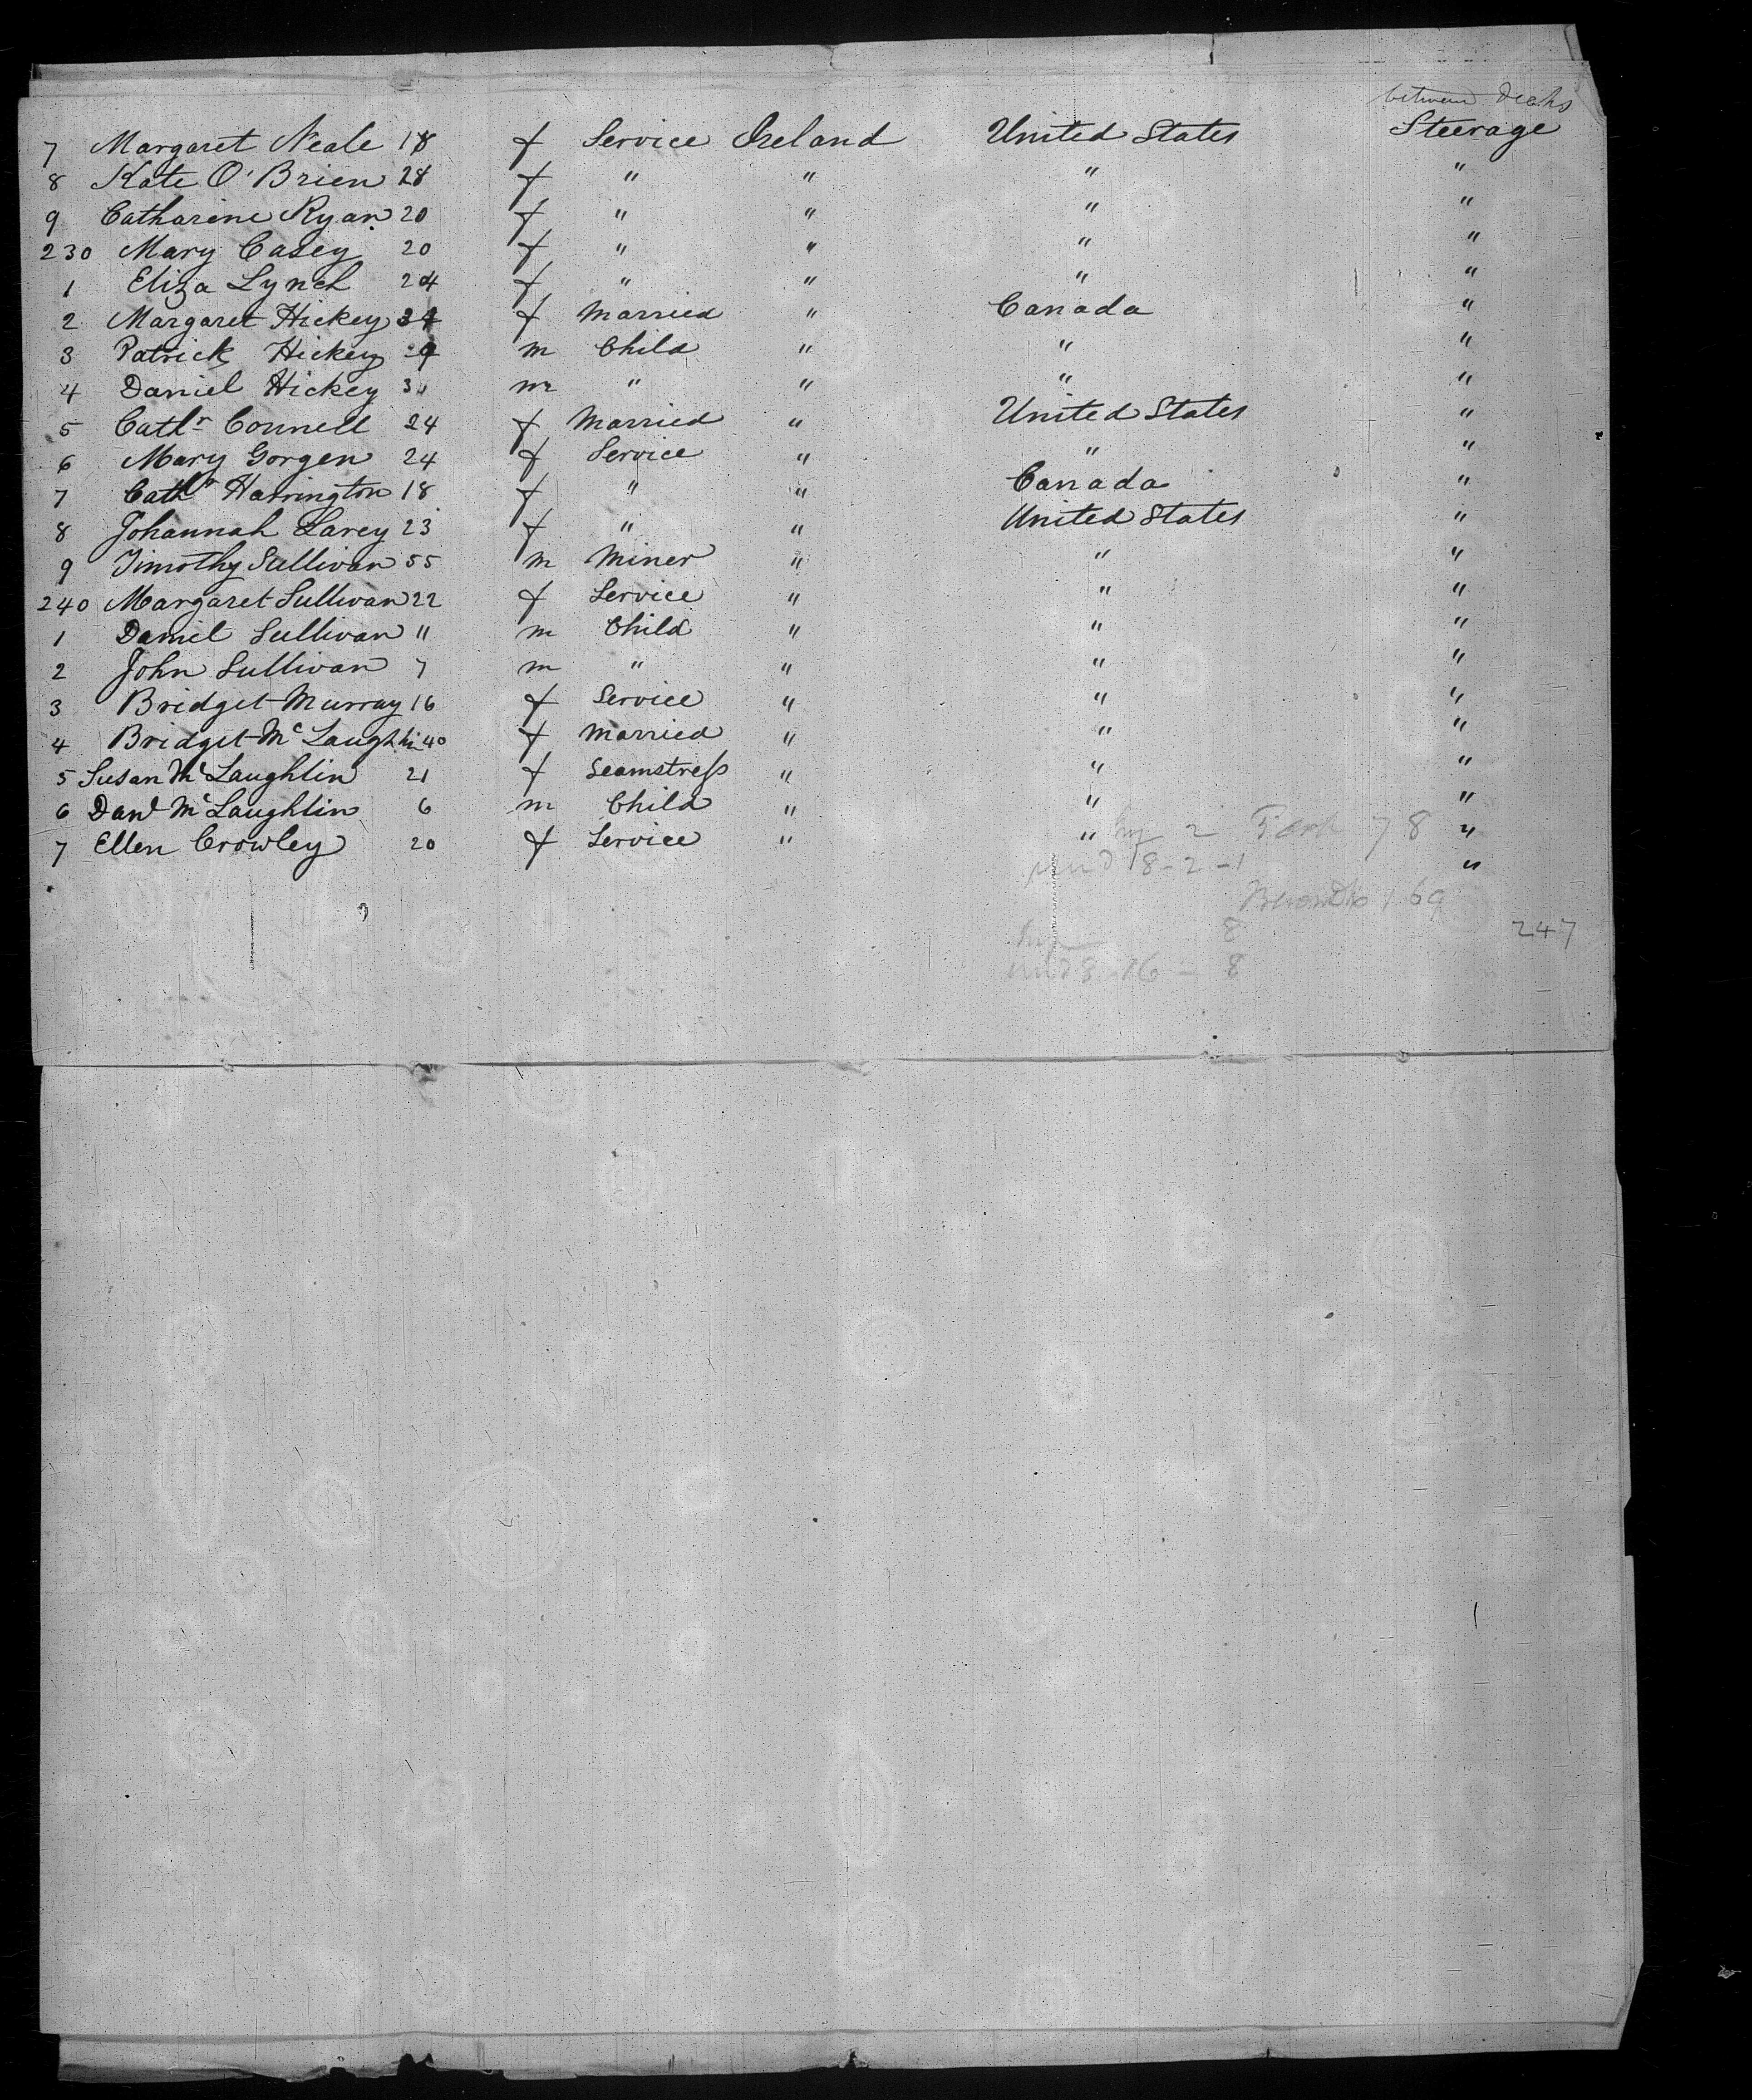 between decks
7 Margaret Neale 18 f Service Ireland United States Steerage
8 Kate O'Brien 28 f " " " "
9 Catharine Ryan 20 f " " " "
230 Mary Casey 20 f " " " "
1 Eliza Lynch 24 f " " " "
2 Margaret Hickey 34 f Married " Canada "
3 Patrick Hickey 9 m Child " " "
4 Daniel Hickey 3 m " " " "
5 Cathr Connell 24 f Married " United States "
6 Mary Gorgen 24 f Service " " "
7 Cathr Harrington 18 f " " Canada "
8 Johannah Larey 23 f " " United States "
9 Timothy Sullivan 55 m Miner " " "
240 Margaret Sullivan 22 f Service " " "
1 Daniel Sullivan 11 m Child " " "
2 John Sullivan 7 m " " " "
3 Bridget Murray 16 f Service " " "
4 Bridget McLaughlin 40 f Married " " "
5 Susan McLaughlin 21 f Seamstress " " "
6 Danl McLaughlin 6 m Child " " "
7 Ellen Crowley 20 f Service " " 2 78 "
und 8-2-1 "
169
8 247
und 8 16 = 8